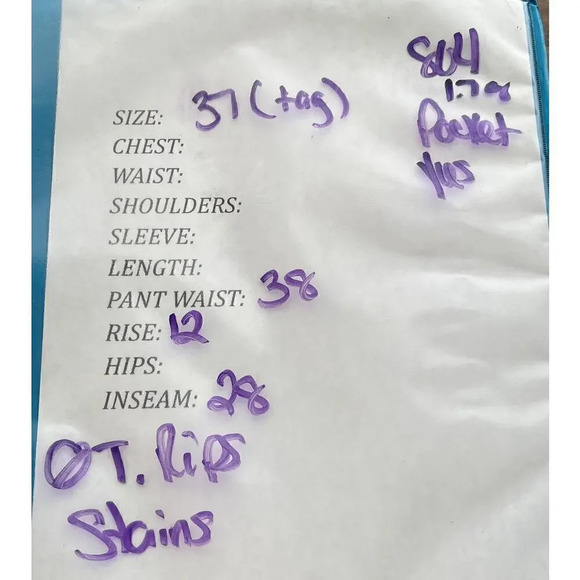 SIZE: 37 (tag)
804
1.7 oz
Pocket
yes
CHEST:
WAIST:
SHOULDERS:
SLEEVE:
LENGTH:
PANT WAIST: 38
RISE: 12
HIPS:
INSEAM: 28
ØT. Rips
Stains